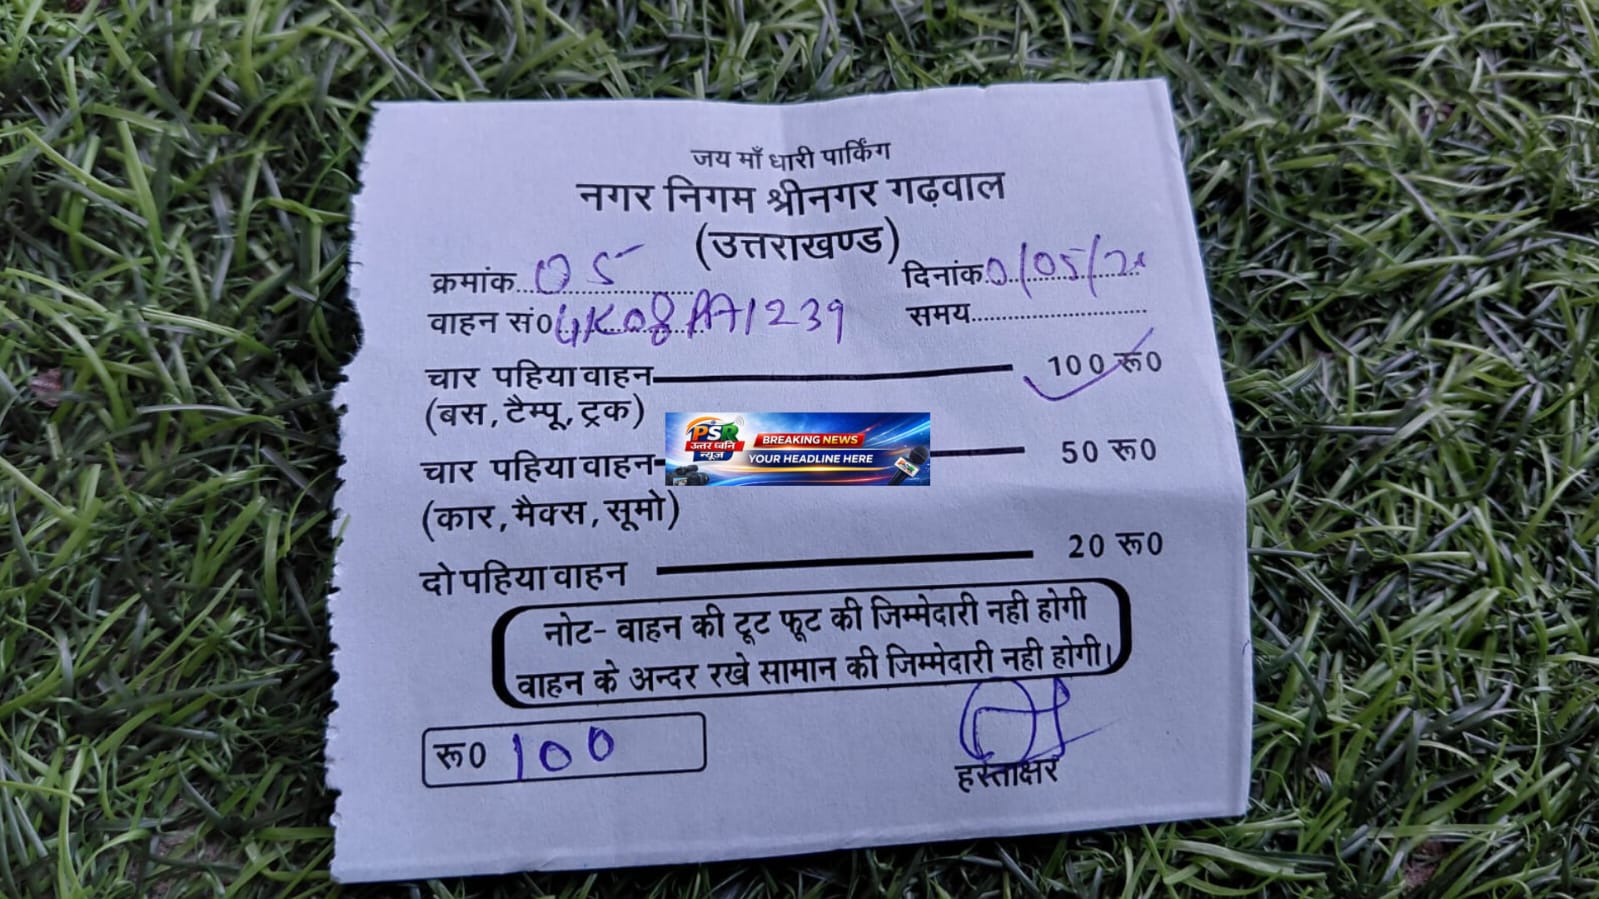 जय माँ धारी पार्किंग
नगर निगम श्रीनगर गढ़वाल
(उत्तराखण्ड)
क्रमांक 05
दिनांक 0/05/2
वाहन सं0 UK08PA1239
समय
चार पहिया वाहन 100 रू0
(बस, टैम्पू, ट्रक)
PSR
उत्तर ध्वनि
न्यूज
BREAKING NEWS
YOUR HEADLINE HERE
चार पहिया वाहन 50 रू0
(कार, मैक्स, सूमो)
दो पहिया वाहन 20 रू0
नोट- वाहन की टूट फूट की जिम्मेदारी नही होगी
वाहन के अन्दर रखे सामान की जिम्मेदारी नही होगी।
रू0 100
हस्ताक्षर